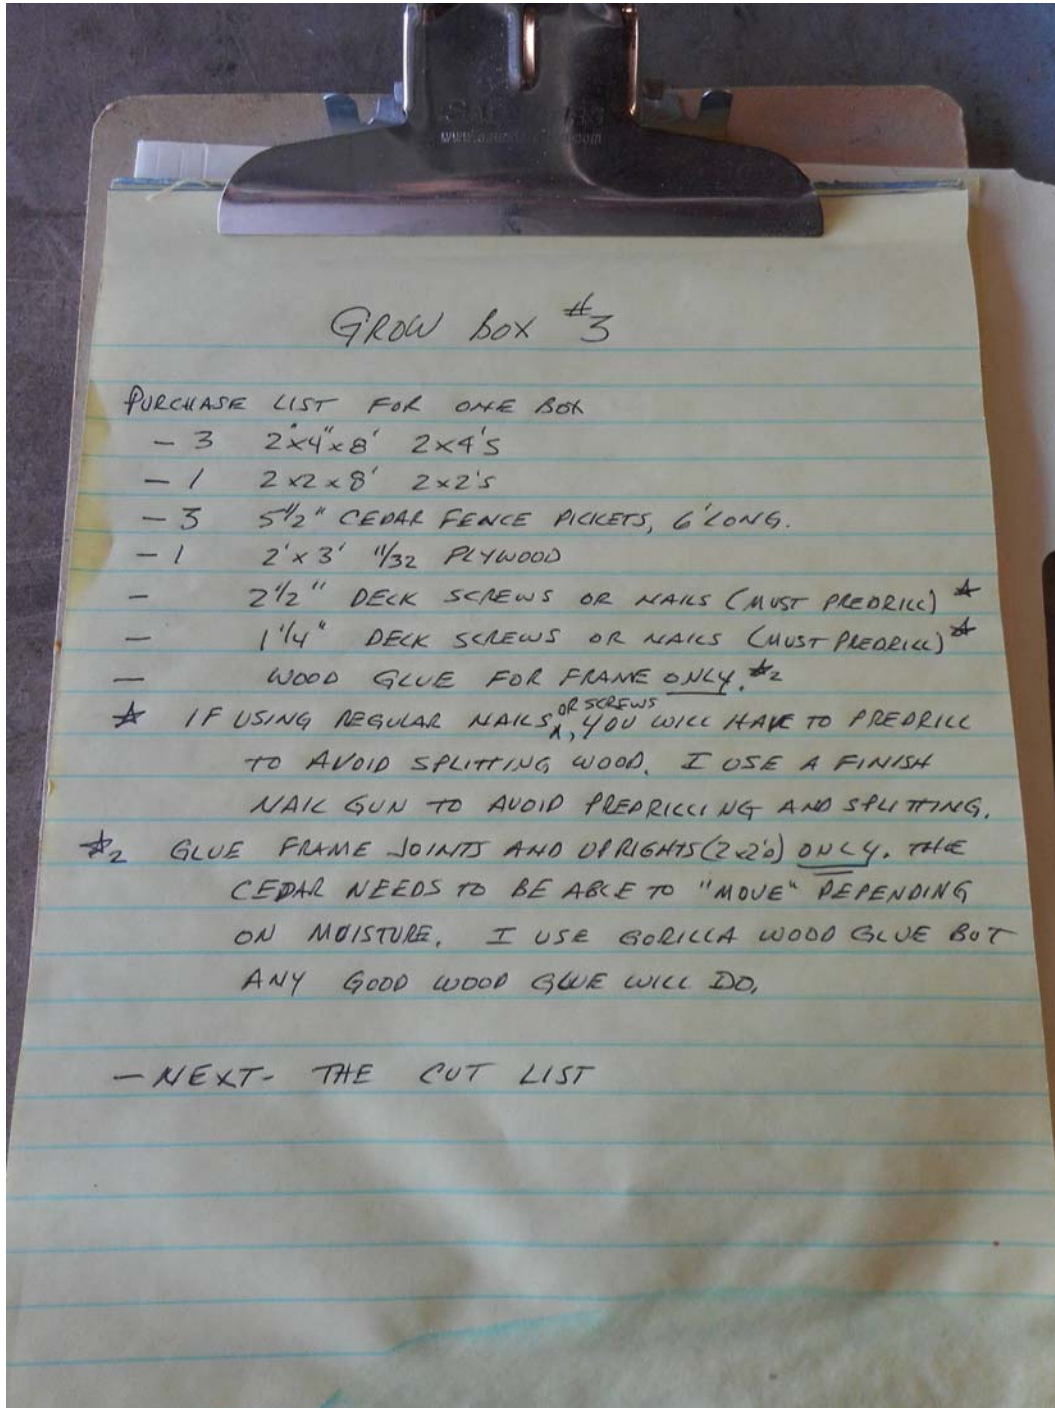 GROW BOX #3
PURCHASE LIST FOR ONE BOX
- 3 2"x4"x8' 2x4's
- 1 2x2x8' 2x2's
- 3 5 1/2" CEDAR FENCE PICKETS, 6' LONG.
- 1 2'x3' 11/32 PLYWOOD
- 2 1/2" DECK SCREWS OR NAILS (MUST PREDRILL) ☆
- 1 1/4" DECK SCREWS OR NAILS (MUST PREDRILL) ☆
- WOOD GLUE FOR FRAME ONLY. ☆2
☆ IF USING REGULAR NAILS OR SCREWS, YOU WILL HAVE TO PREDRILL
TO AVOID SPLITTING WOOD. I USE A FINISH
NAIL GUN TO AVOID PREDRILLING AND SPLITTING.
☆2 GLUE FRAME JOINTS AND UPRIGHTS (2x2's) ONLY. THE
CEDAR NEEDS TO BE ABLE TO "MOVE" DEPENDING
ON MOISTURE. I USE GORILLA WOOD GLUE BUT
ANY GOOD WOOD GLUE WILL DO.
- NEXT - THE CUT LIST